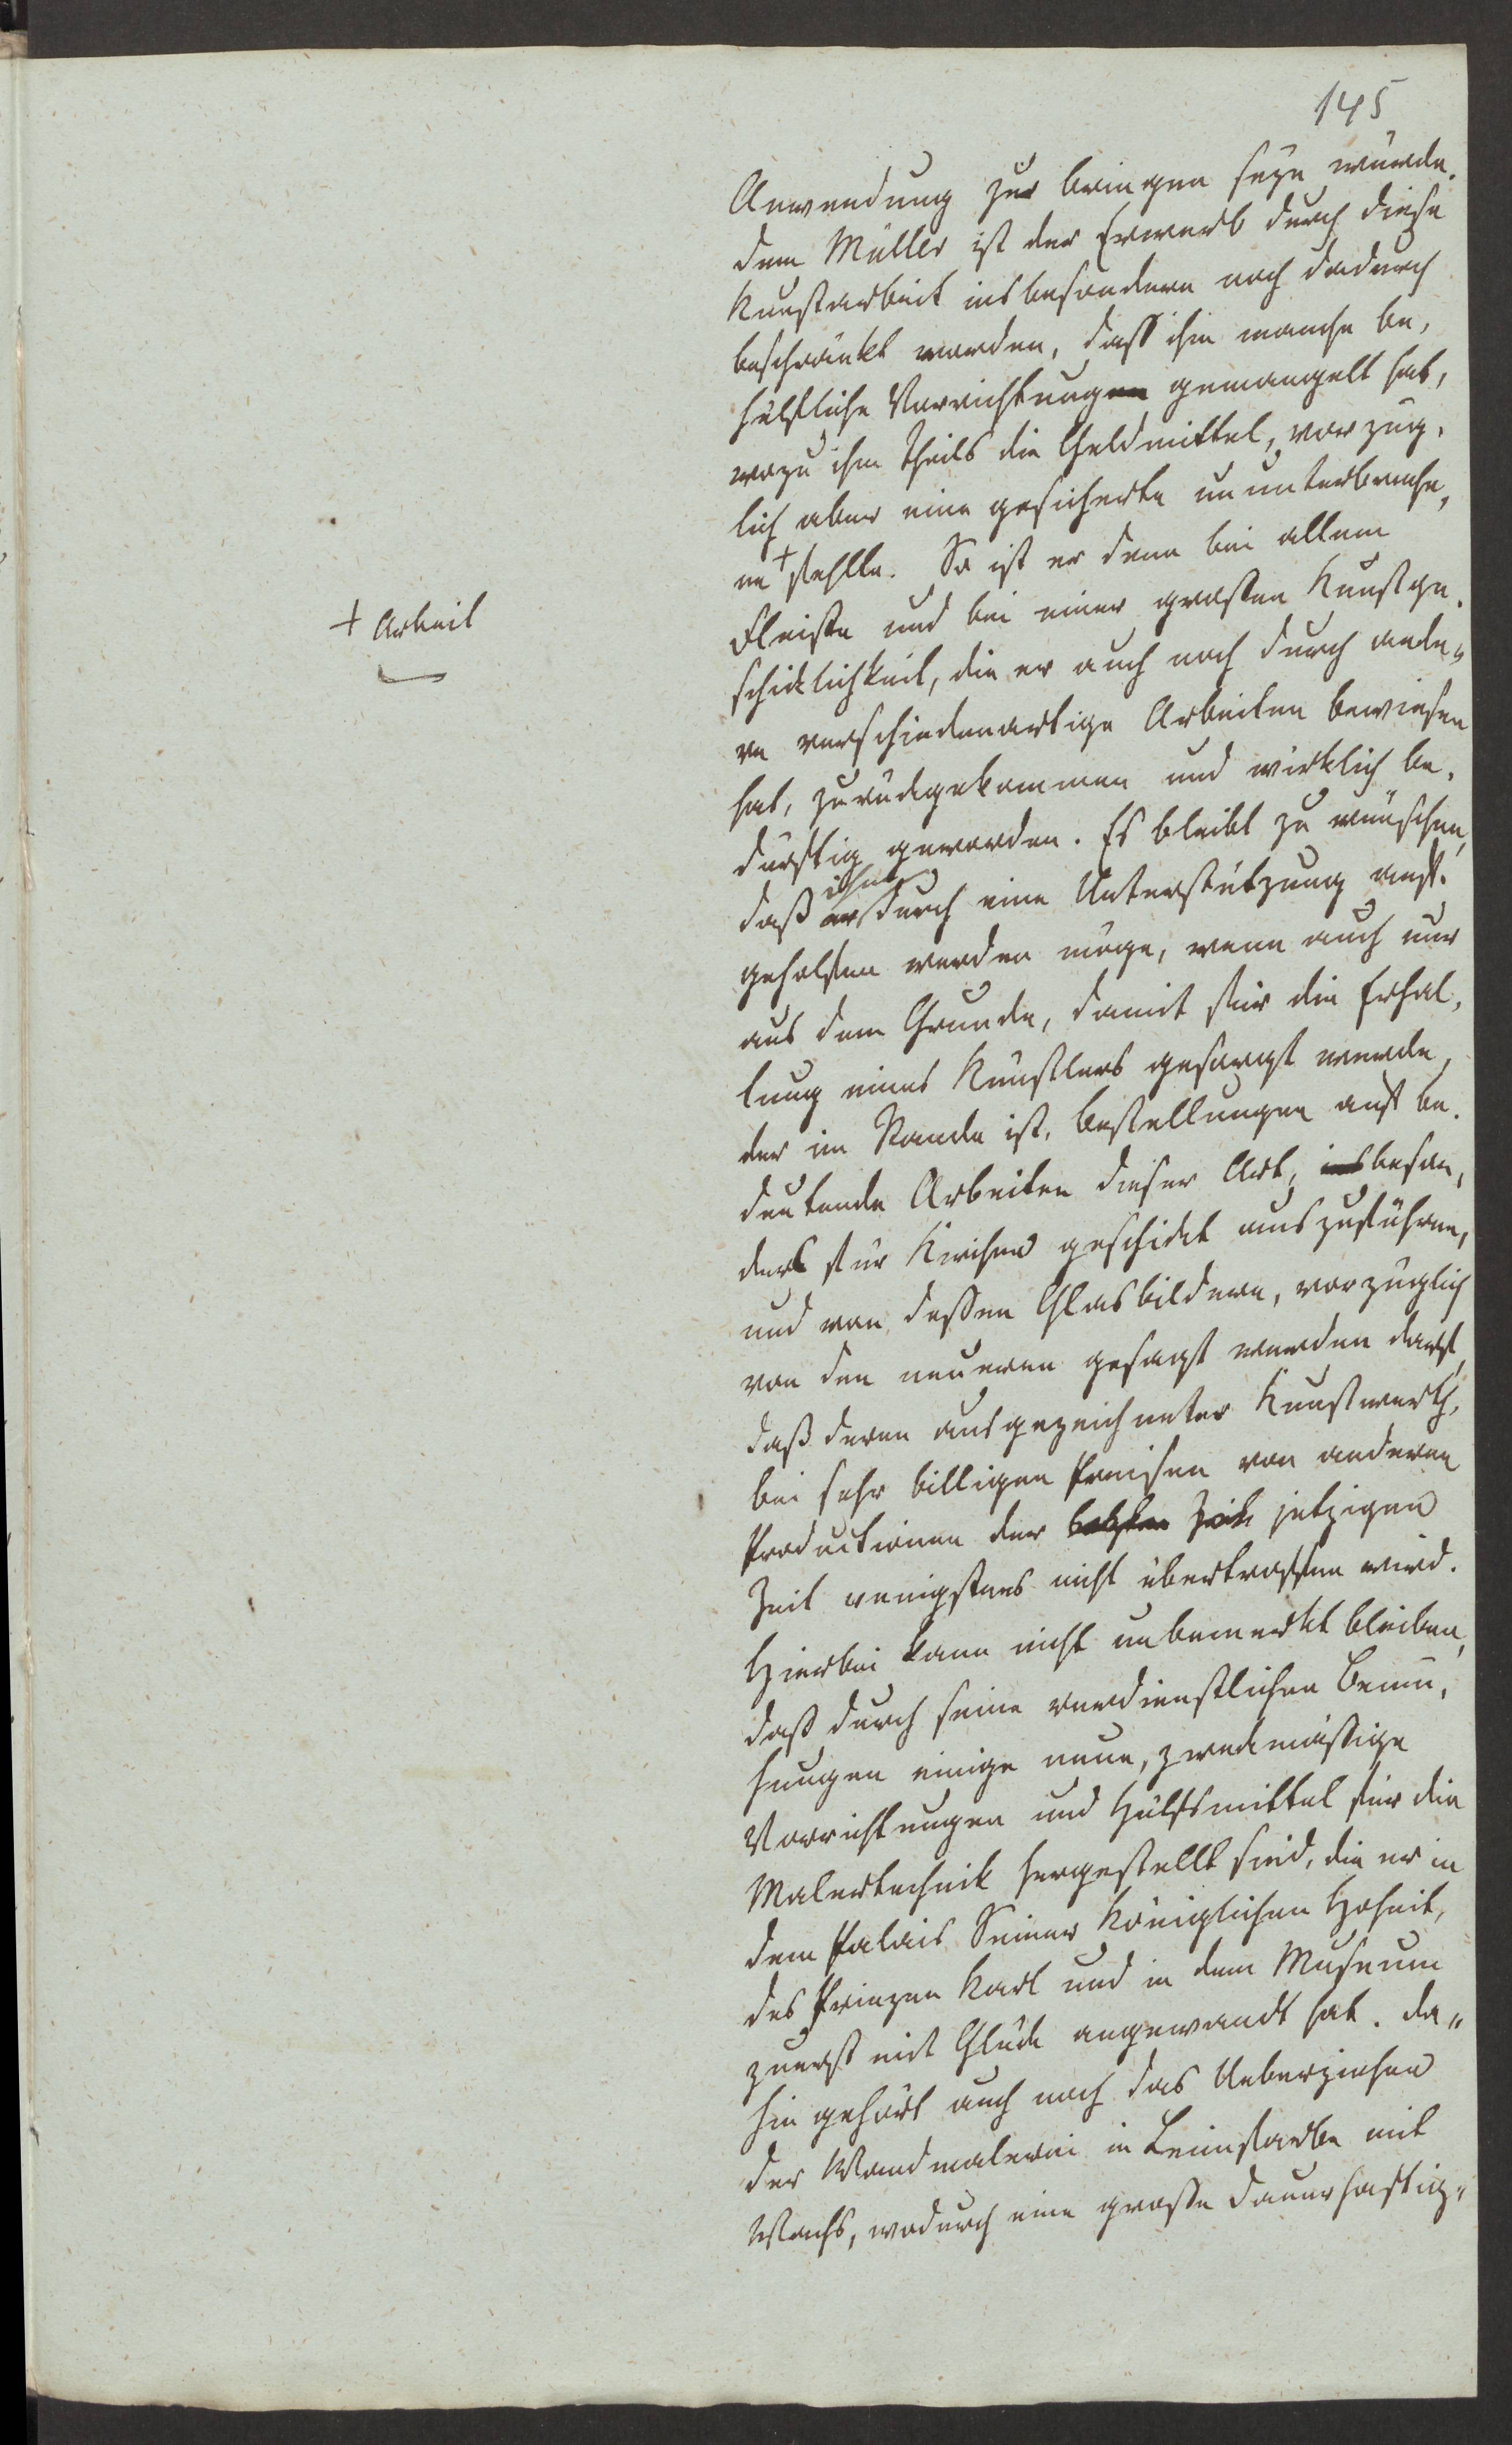 145
Anwendung zur bringen seyn würde.
dem Müller ist der Erwerb durch diese
Kunstarbeit insbesondere noch dadurch
beschränkt worden, daß ihm manche be,
hülfliche Vorrichtungen gemangelt hat,
wozu ihm theils die Geldmittel, vorzüg,
lich aber eine gesicherte ununterbroche,
ne + fehlte. So ist er denn bei allem
+ Arbeit
Fleiße und bei einer großen Kunstge,
schicklichkeit, die er auch noch durch ande„
re verschiedenartige Arbeiten bewiesen
hat, zurückgekommen und wirklich be,
dürftig geworden. Es bleibt zu wünschen,
daß er ihm durch eine Unterstützung auf,
geholfen werden möge, wenn auch nur
aus dem Grunde, damit für die Erhal,
tung eines Künstlers gesorgt werde,
der im Stande ist, Bestellungen auf be,
deutende Arbeiten dieser Art, insbeson,
ders für Kirchen geschickt auszuführen,
und von dessen Glasbildern, vorzüglich
von den neueren gesagt werden darf,
daß deren ausgezeichneter Kunstwerth,
bei sehr billigen Preisen von anderen
Productionen der letzten Zeit jetzigen
Zeit wenigstens nicht übertroffen wird.
Hierbei kann nicht unbemerkt bleiben,
daß durch seine verdienstlichen Bemü,
hungen einige neue, zweckmäßige
Vorrichtungen und Hülfsmittel für die
Malertechnik hergestellt sind, die er in
dem Palais Seiner Königlichen Hoheit,
des Prinzen Karl und in dem Museum
zuerst mit Glück angewandt hat. Da„
hin gehört auch noch das Ueberziehen
der Wandmalerei in Leimfarbe mit
Wachs, wodurch eine große Dauerhaftig„